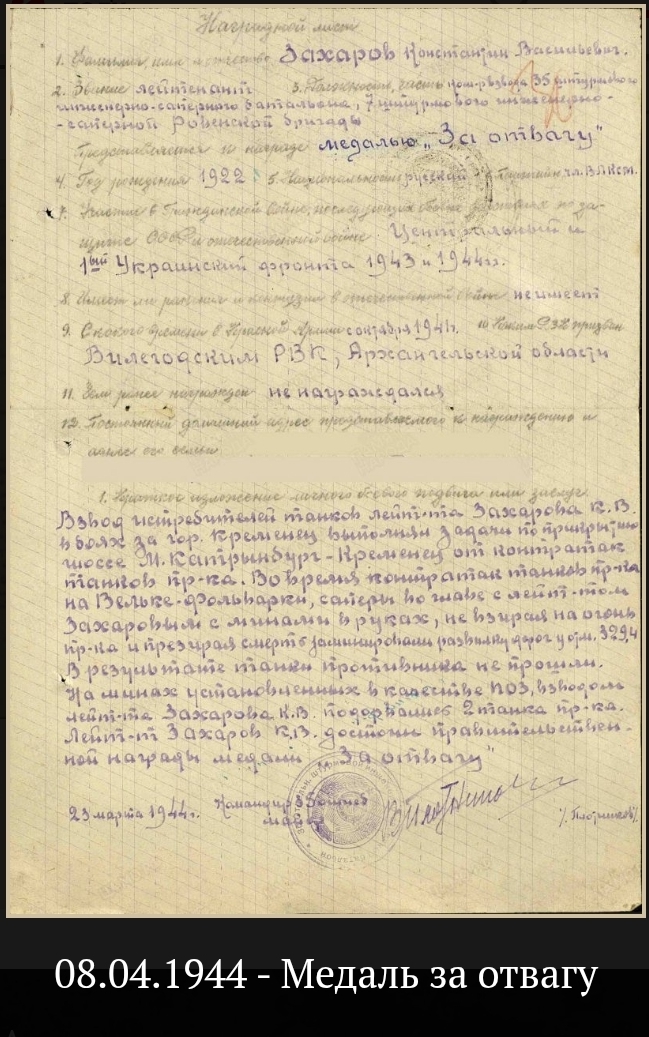 Наградной лист
1. Фамилия имя и отчество Захаров Константин Васильевич.
2. Звание лейтенант 3. Должность, часть ком-р взвода 35 штурмового
инженерно-саперного батальона, 7 штурмового инженерно-
-саперной Ровенской бригады
Представляется к награде медалью „За отвагу"
4. Год рождения 1922 5. Национальность русский Партийн. чл. ВЛКСМ.
7. Участие в Гражданской войне, последующих боевых действиях по за-
щите СССР и отечественной войне Центральный и
1ый Украинский фронта 1943 и 1944 гг.
8. Имеет ли ранения и контузии в отечественной войне не имеет
9. С какого времени в Красной Армии с октября 1941 г. 10 Каким РВК призван
Вилегодским РВК, Архангельской области
11. Чем ранее награжден не награждался
12. Постоянный домашний адрес представляемого к награждению и
адрес его семьи
1. Краткое изложение личного боевого подвига или заслуг
Взвод истребителей танков лейт-та Захарова К.В.
в боях за гор. Кременец выполнял задачи по прикрытию
шоссе М. Катрынбург - Кременец от контратак
танков пр-ка. Во время контратак танков пр-ка
на Вельке-Фольварки, саперы во главе с лейт-том
Захаровым с минами в руках, не взирая на огонь
пр-ка и презирая смерть заминировали развилку дорог у отм. 329,4
В результате танки противника не прошли.
На минах установленных в качестве ПОЗ, взводом
лейт-та Захарова К.В. подорвались 2 танка пр-ка.
Лейт-т Захаров К.В. достоин правительствен-
ной награды медали „За отвагу"
23 марта 1944 г. Командир
майор
08.04.1944 - Медаль за отвагу